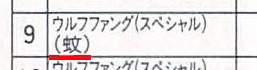 9
ウルフファング(スペシャル)
(蚊)
ウルフファング(スペシャル)